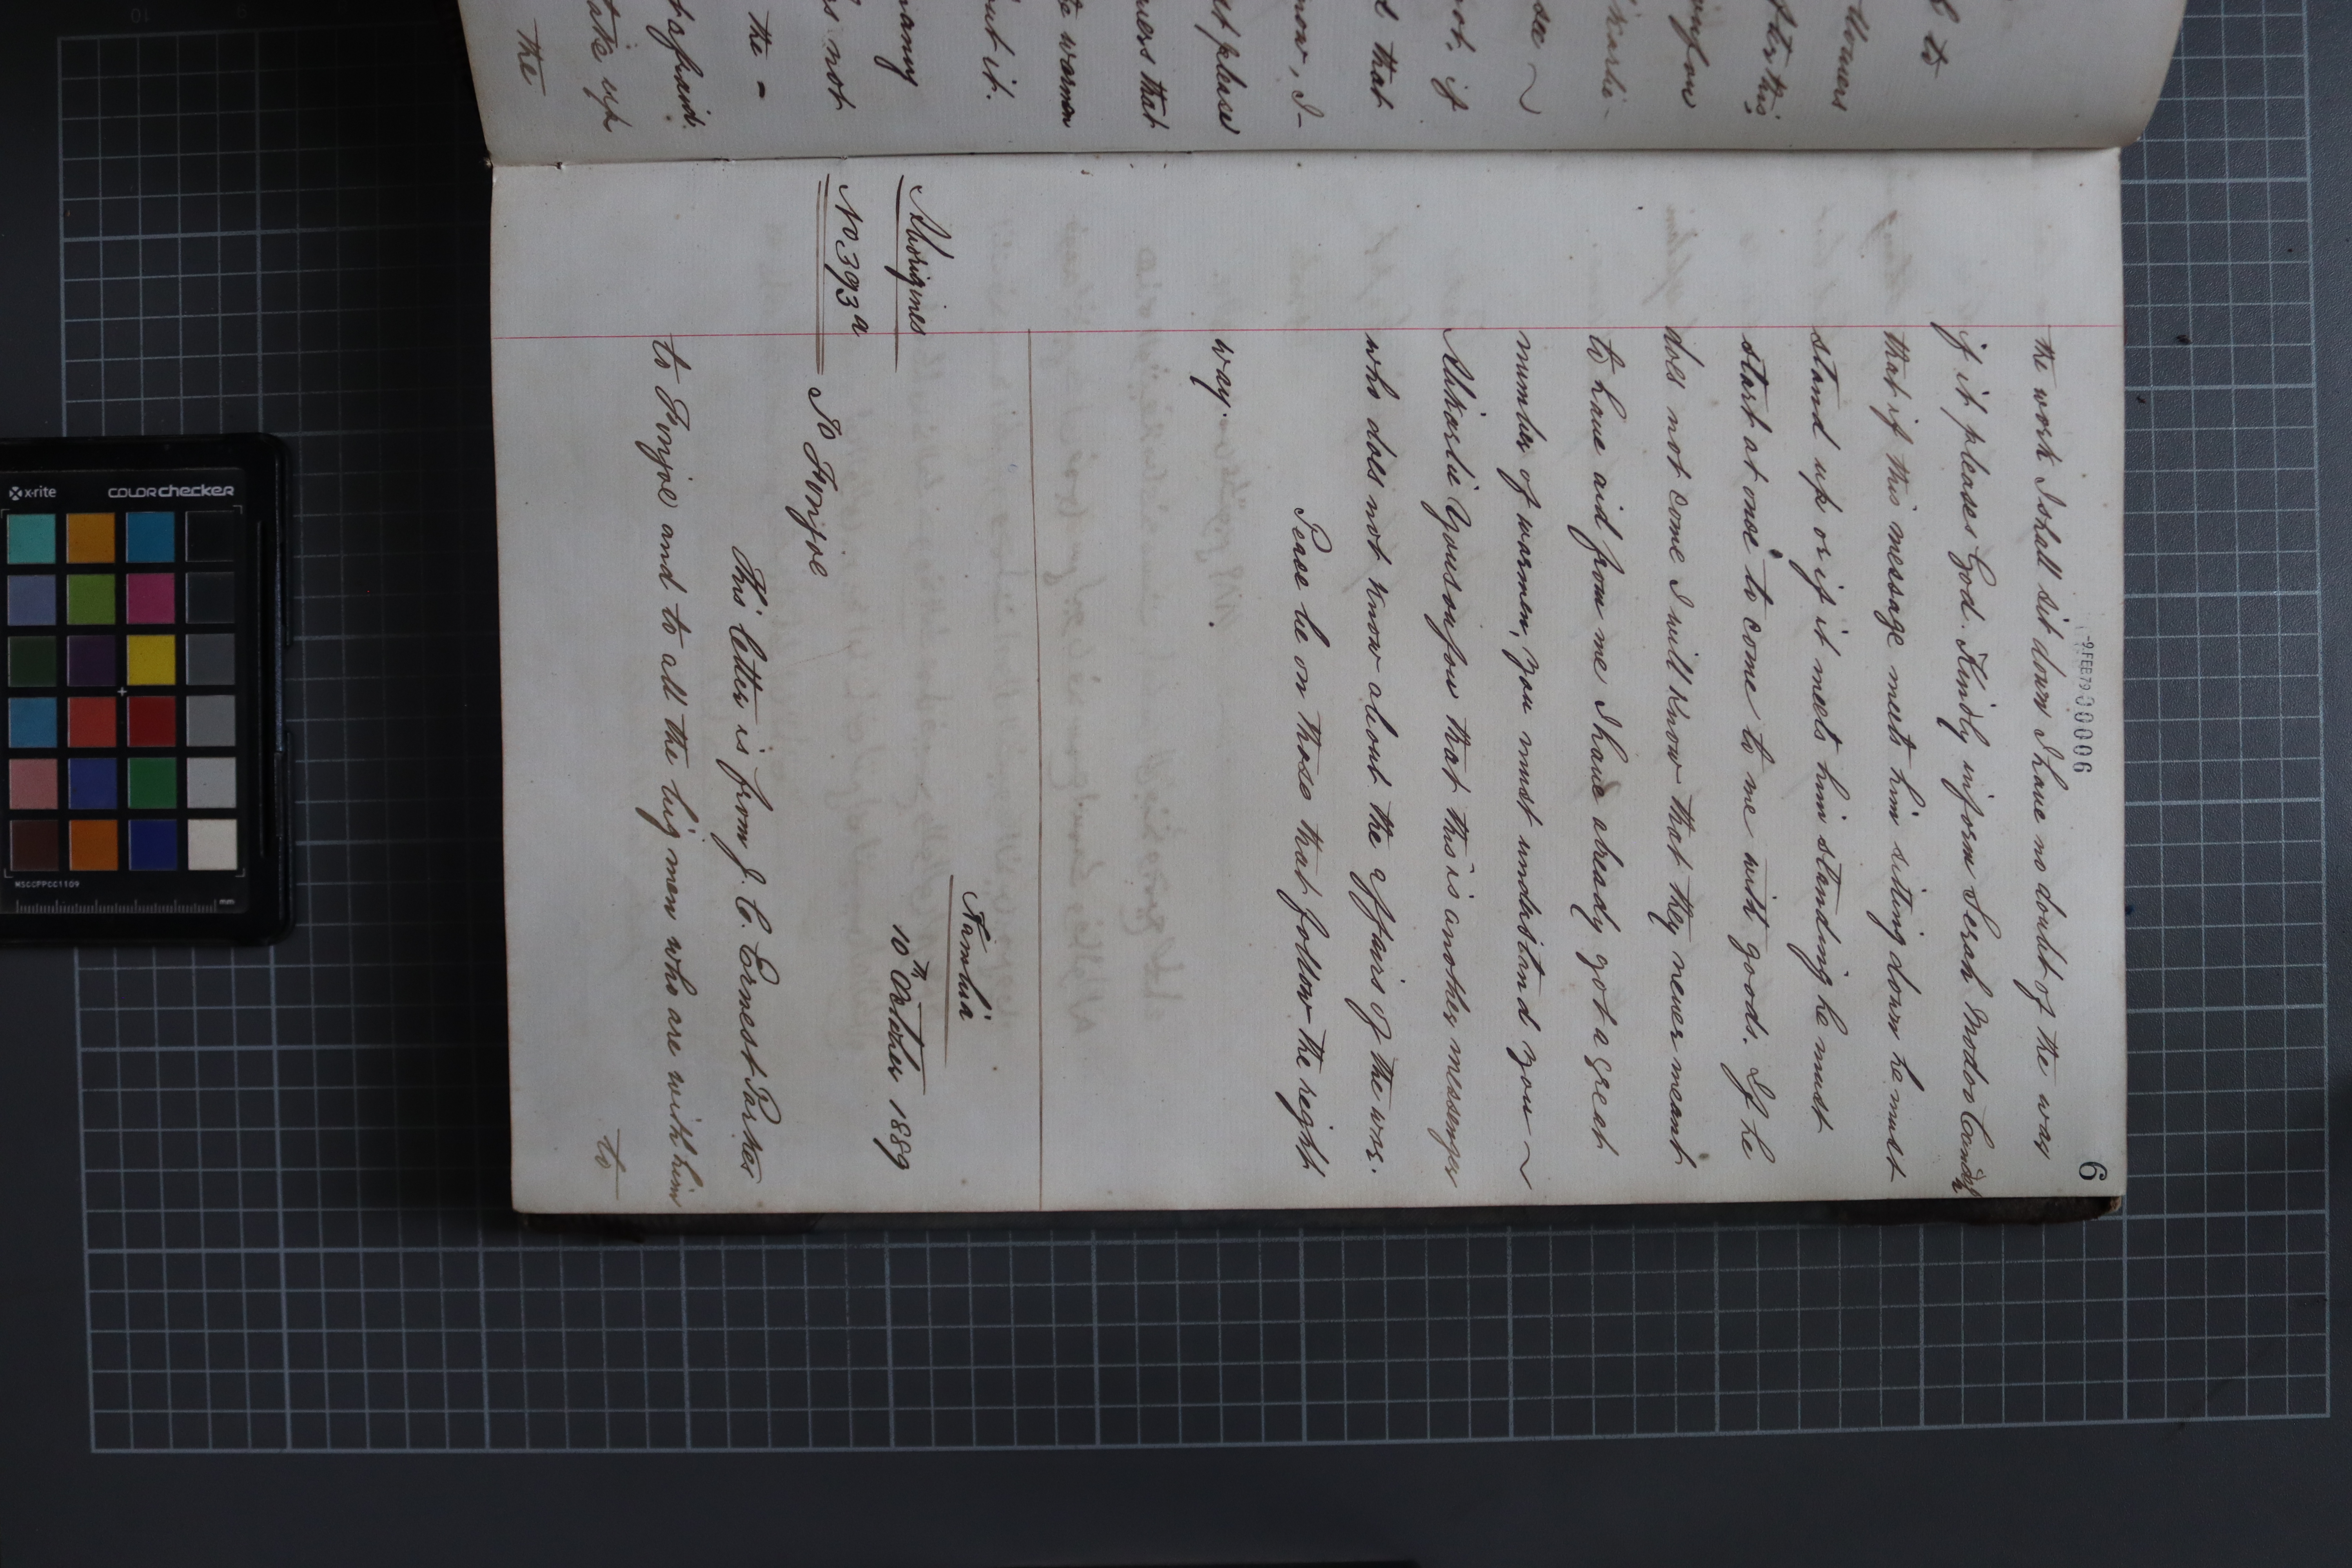 -9 FEB 79 00006
6
the work I shall sit down I have no doubt of the way
if it pleases God. Kindly inform Serah Modoo Cundah
that if this message meets him sitting down he must
stand up or if it meets him standing he must
start at once to come to me with goods. If he
does not come I will know that they never meant
to have aid from me I have already got a great
number of warmen, you must understand you ~
Alikarlie Yousoufou that this is another messenger
who does not know about the affairs of the war.
Peace be on those that follow the right
way.
Nambia
10th October 1889
Aborigines
No 393a
To Fonjoe
This letter is from J. C. Ernest Parkes
to Fonjoe and to all the big men who are with him
to
to
stu this
see ~
not, if
that
now, I
please
that
warmen
out it.
many
not
the -
afraid.
take up
the
x-rite
colorchecker
MSCCPPCC1109
mm